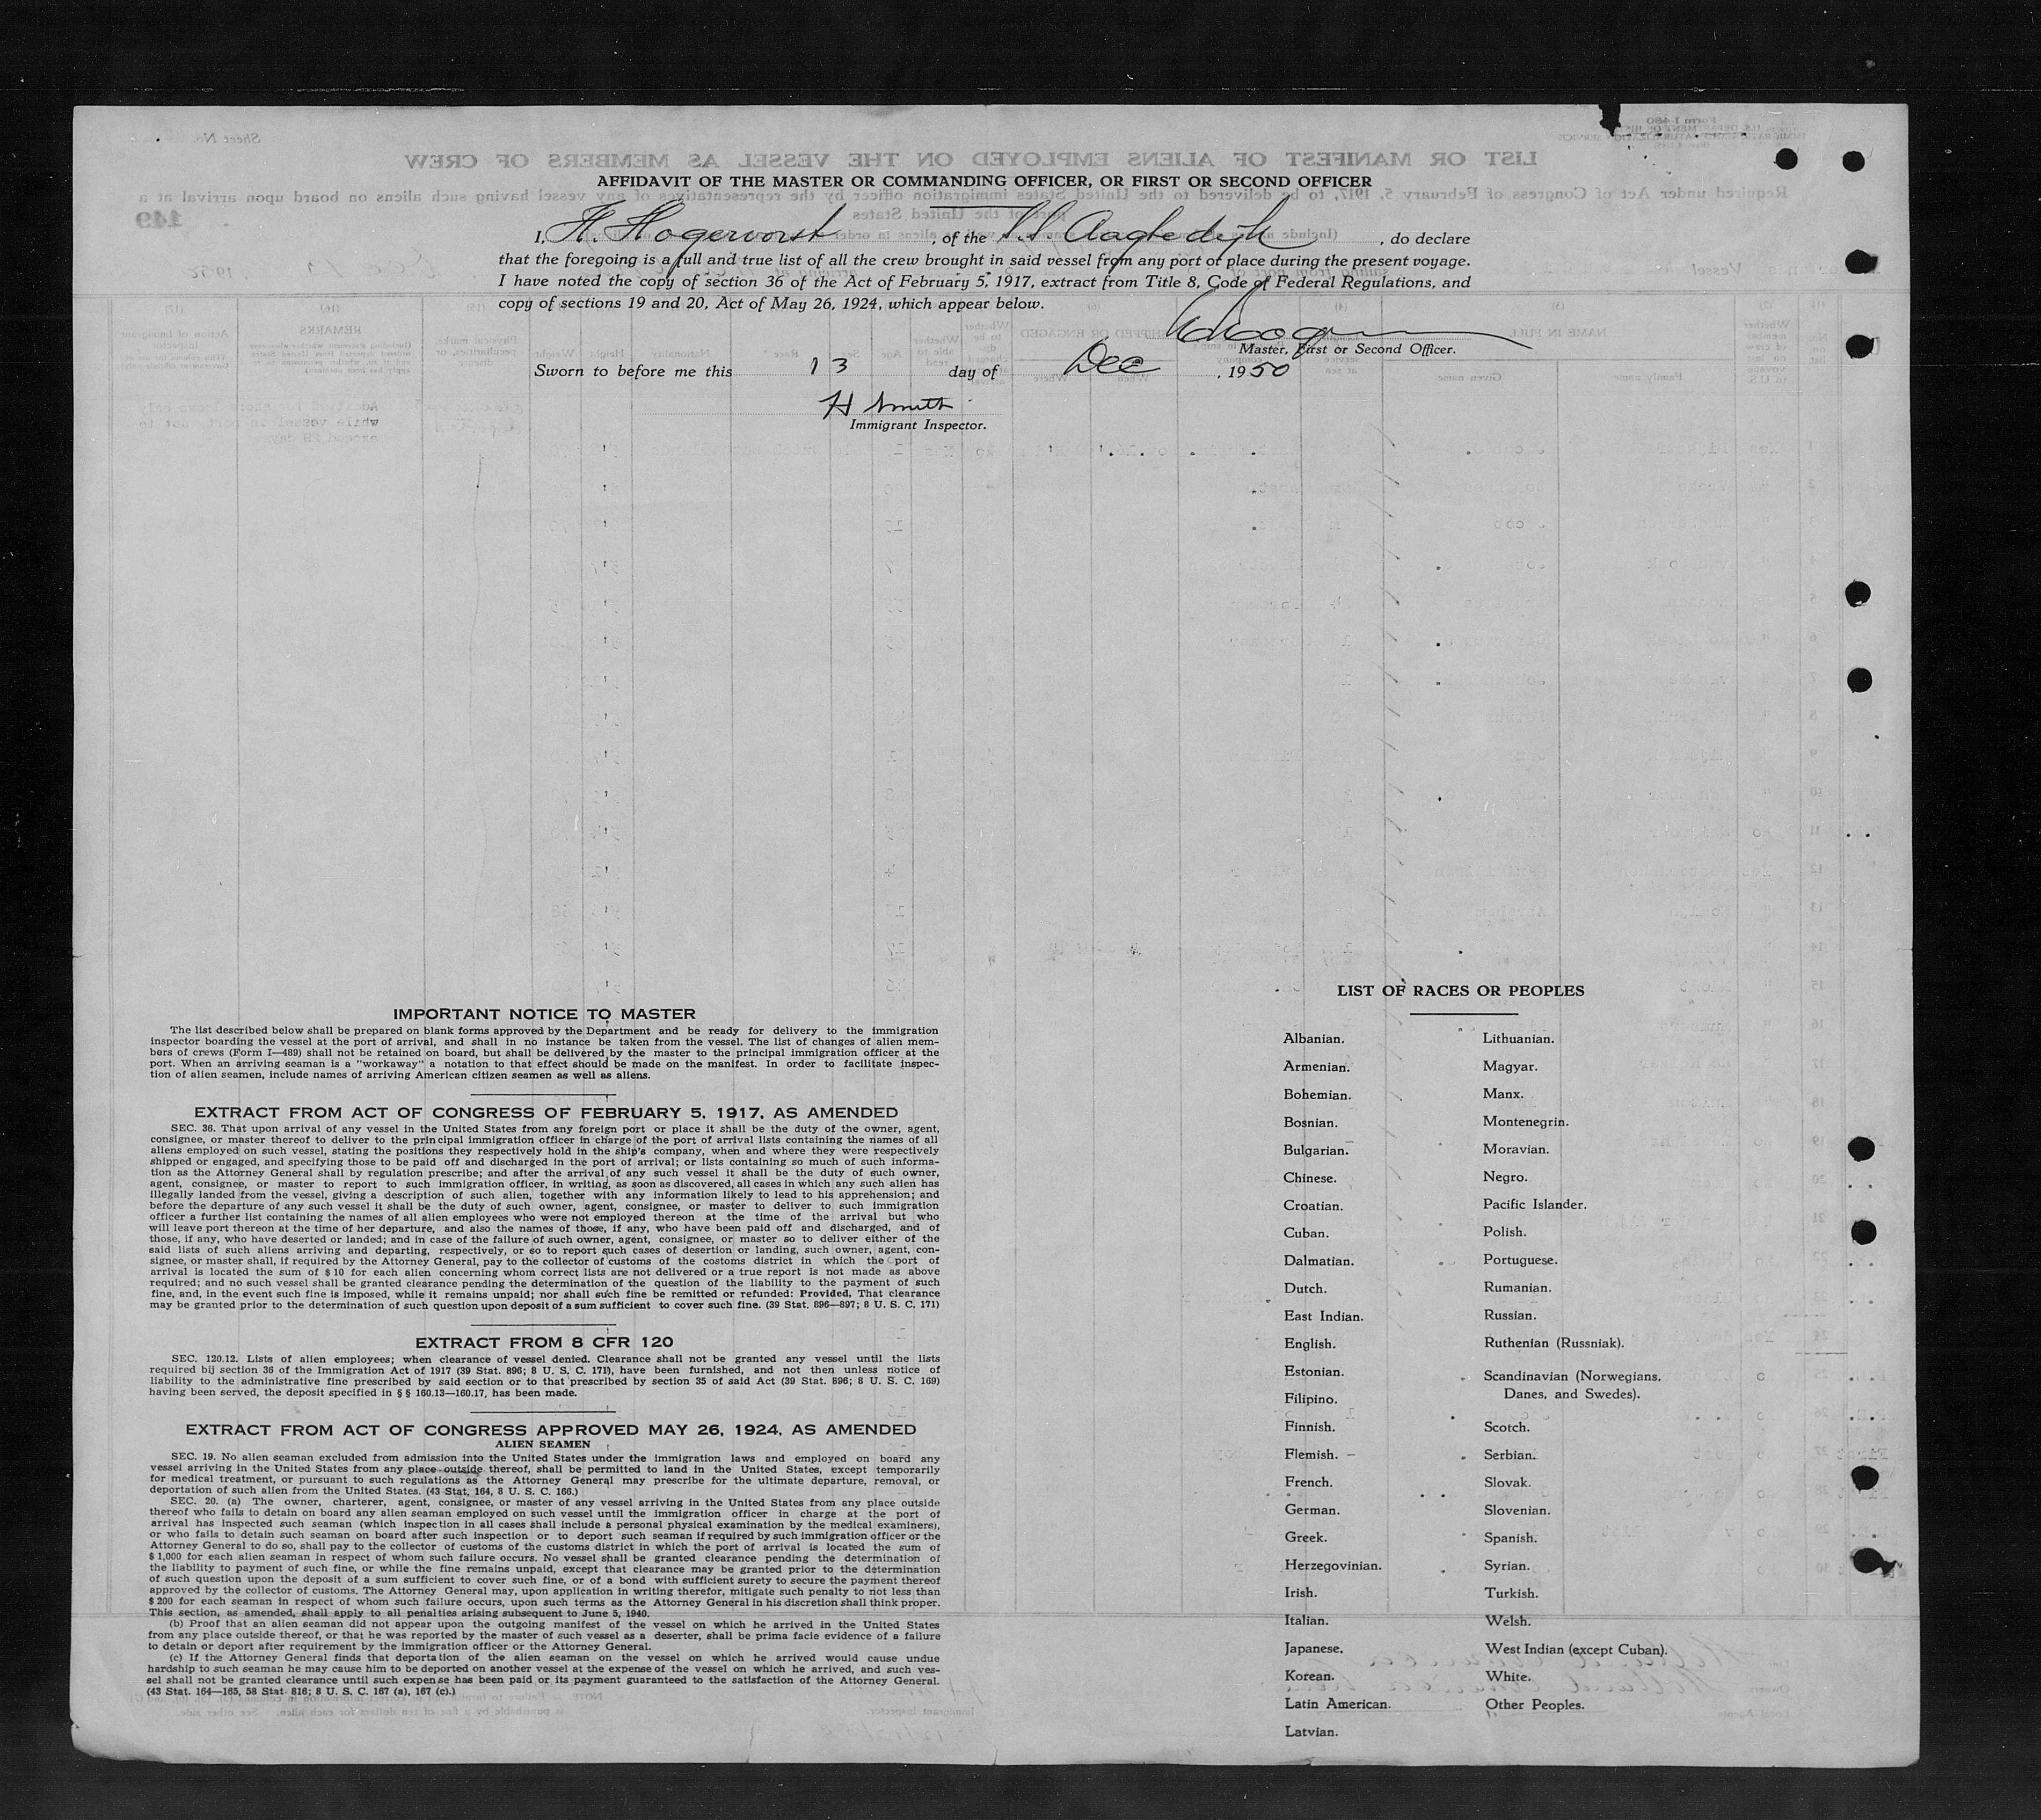 AFFIDAVIT OF THE MASTER OR COMMANDING OFFICER, OR FIRST OR SECOND OFFICER
I, H. Hogervorst, of the S.S. Aagtedyk, do declare
that the foregoing is a full and true list of all the crew brought in said vessel from any port or place during the present voyage.
I have noted the copy of section 36 of the Act of February 5, 1917, extract from Title 8, Code of Federal Regulations, and
copy of sections 19 and 20, Act of May 26, 1924, which appear below.
Master, First or Second Officer.
Sworn to before me this 13 day of Dec, 1950
H Smith
Immigrant Inspector.
IMPORTANT NOTICE TO MASTER
The list described below shall be prepared on blank forms approved by the Department and be ready for delivery to the immigration
inspector boarding the vessel at the port of arrival, and shall in no instance be taken from the vessel. The list of changes of alien mem-
bers of crews (Form I—489) shall not be retained on board, but shall be delivered by the master to the principal immigration officer at the
port. When an arriving seaman is a "workaway" a notation to that effect should be made on the manifest. In order to facilitate inspec-
tion of alien seamen, include names of arriving American citizen seamen as well as aliens.
EXTRACT FROM ACT OF CONGRESS OF FEBRUARY 5, 1917, AS AMENDED
SEC. 36. That upon arrival of any vessel in the United States from any foreign port or place it shall be the duty of the owner, agent,
consignee, or master thereof to deliver to the principal immigration officer in charge of the port of arrival lists containing the names of all
aliens employed on such vessel, stating the positions they respectively hold in the ship's company, when and where they were respectively
shipped or engaged, and specifying those to be paid off and discharged in the port of arrival; or lists containing so much of such informa-
tion as the Attorney General shall by regulation prescribe; and after the arrival of any such vessel it shall be the duty of such owner,
agent, consignee, or master to report to such immigration officer, in writing, as soon as discovered, all cases in which any such alien has
illegally landed from the vessel, giving a description of such alien, together with any information likely to lead to his apprehension; and
before the departure of any such vessel it shall be the duty of such owner, agent, consignee, or master to deliver to such immigration
officer a further list containing the names of all alien employees who were not employed thereon at the time of the arrival but who
will leave port thereon at the time of her departure, and also the names of those, if any, who have been paid off and discharged, and of
those, if any, who have deserted or landed; and in case of the failure of such owner, agent, consignee, or master so to deliver either of the
said lists of such aliens arriving and departing, respectively, or so to report such cases of desertion or landing, such owner, agent, con-
signee, or master shall, if required by the Attorney General, pay to the collector of customs of the costoms district in which the port of
arrival is located the sum of $10 for each alien concerning whom correct lists are not delivered or a true report is not made as above
required; and no such vessel shall be granted clearance pending the determination of the question of the liability to the payment of such
fine, and, in the event such fine is imposed, while it remains unpaid; nor shall such fine be remitted or refunded: Provided, That clearance
may be granted prior to the determination of such question upon deposit of a sum sufficient to cover such fine. (39 Stat. 896—897; 8 U. S. C. 171)
EXTRACT FROM 8 CFR 120
SEC. 120.12. Lists of alien employees; when clearance of vessel denied. Clearance shall not be granted any vessel until the lists
required bij section 36 of the Immigration Act of 1917 (39 Stat. 896; 8 U. S. C. 171), have been furnished, and not then unless notice of
liability to the administrative fine prescribed by said section or to that prescribed by section 35 of said Act (39 Stat. 896; 8 U. S. C. 169)
having been served, the deposit specified in § § 160.13—160.17, has been made.
EXTRACT FROM ACT OF CONGRESS APPROVED MAY 26, 1924, AS AMENDED
ALIEN SEAMEN
SEC. 19. No alien seaman excluded from admission into the United States under the immigration laws and employed on board any
vessel arriving in the United States from any place outside thereof, shall be permitted to land in the United States, except temporarily
for medical treatment, or pursuant to such regulations as the Attorney General may prescribe for the ultimate departure, removal, or
deportation of such alien from the United States. (43 Stat. 164, 8 U. S. C. 166.)
SEC. 20. (a) The owner, charterer, agent, consignee, or master of any vessel arriving in the United States from any place outside
thereof who fails to detain on board any alien seaman employed on such vessel until the immigration officer in charge at the port of
arrival has inspected such seaman (which inspection in all cases shall include a personal physical examination by the medical examiners),
or who fails to detain such seaman on board after such inspection or to deport such seaman if required by such immigration officer or the
Attorney General to do so, shall pay to the collector of customs of the customs district in which the port of arrival is located the sum of
$1,000 for each alien seaman in respect of whom such failure occurs. No vessel shall be granted clearance pending the determination of
the liability to payment of such fine, or while the fine remains unpaid, except that clearance may be granted prior to the determination
of such question upon the deposit of a sum sufficient to cover such fine, or of a bond with sufficient surety to secure the payment thereof
approved by the collector of customs. The Attorney General may, upon application in writing therefor, mitigate such penalty to not less than
$200 for each seaman in respect of whom such failure occurs, upon such terms as the Attorney General in his discretion shall think proper.
This section, as amended, shall apply to all penalties arising subsequent to June 5, 1940.
(b) Proof that an alien seaman did not appear upon the outgoing manifest of the vessel on which he arrived in the United States
from any place outside thereof, or that he was reported by the master of such vessel as a deserter, shall be prima facie evidence of a failure
to detain or deport after requirement by the immigration officer or the Attorney General.
(c) If the Attorney General finds that deportation of the alien seaman on the vessel on which he arrived would cause undue
hardship to such seaman he may cause him to be deported on another vessel at the expense of the vessel on which he arrived, and such ves-
sel shall not be granted clearance until such expense has been paid or its payment guaranteed to the satisfaction of the Attorney General.
(43 Stat. 164—165, 58 Stat. 816; 8 U. S. C. 167 (a), 167 (c).)
LIST OF RACES OR PEOPLES
Albanian.
Armenian.
Bohemian.
Bosnian.
Bulgarian.
Chinese.
Croatian.
Cuban.
Dalmatian.
Dutch.
East Indian.
English.
Estonian.
Filipino.
Finnish.
Flemish.
French.
German.
Greek.
Herzegovinian.
Irish.
Italian.
Japanese.
Korean.
Latin American.
Latvian.
Lithuanian.
Magyar.
Manx.
Montenegrin.
Moravian.
Negro.
Pacific Islander.
Polish.
Portuguese.
Rumanian.
Russian.
Ruthenian (Russniak).
Scandinavian (Norwegians,
Danes, and Swedes).
Scotch.
Serbian.
Slovak.
Slovenian.
Spanish.
Syrian.
Turkish.
Welsh.
West Indian (except Cuban).
White.
Other Peoples.